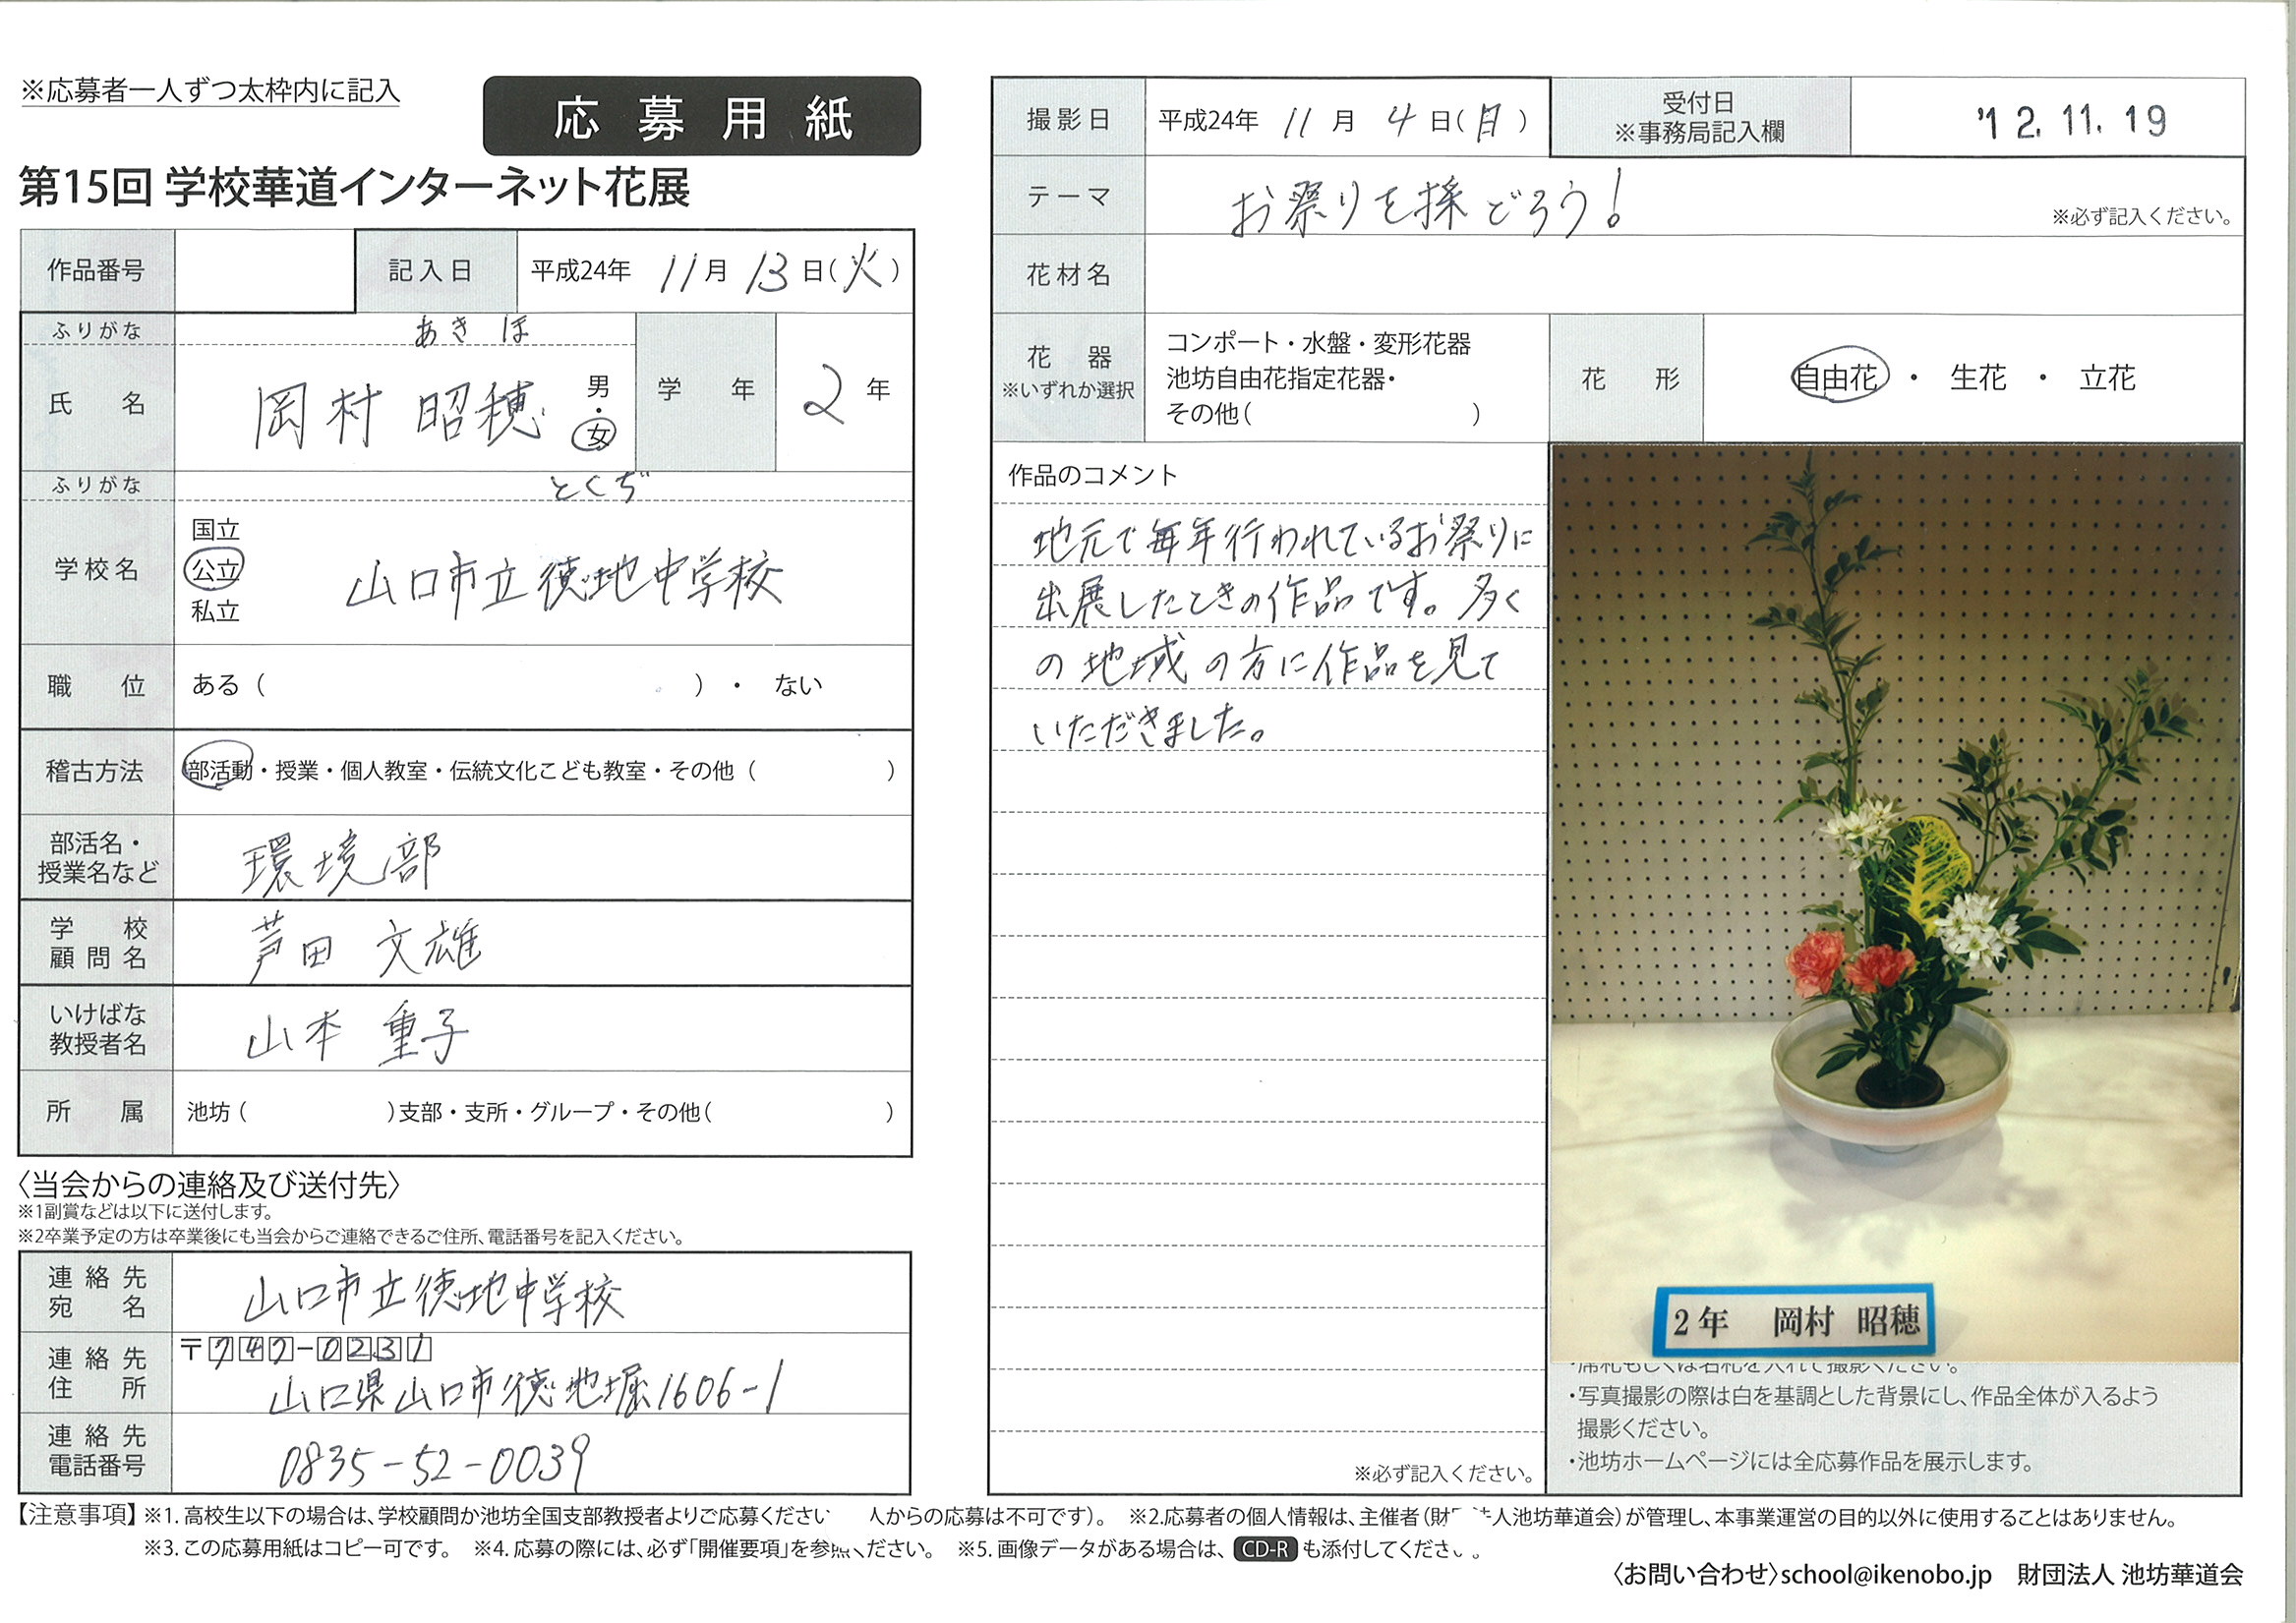 ※応募者一人ずつ太枠内に記入
応募用紙
第15回 学校華道インターネット花展
作品番号
記入日 平成24年 11月 13日(火)
ふりがな あきほ
氏名 岡村 昭穂 男・女
学年 2年
ふりがな とくぢ
学校名 国立 公立 私立 山口市立徳地中学校
職位 ある( )・ ない
稽古方法 部活動・授業・個人教室・伝統文化こども教室・その他( )
部活名・授業名など 環境部
学校顧問名 芦田 文雄
いけばな教授者名 山本 重子
所属 池坊( )支部・支所・グループ・その他( )
〈当会からの連絡及び送付先〉
※1副賞などは以下に送付します。
※2卒業予定の方は卒業後にも当会からご連絡できるご住所、電話番号を記入ください。
連絡先宛名 山口市立徳地中学校
連絡先住所 〒747-0231
山口県山口市徳地堀1606-1
連絡先電話番号 0835-52-0039
撮影日 平成24年 11月 4日(日)
受付日 ※事務局記入欄 '12.11.19
テーマ お祭りを採どろう! ※必ず記入ください。
花材名
花器 ※いずれか選択
コンポート・水盤・変形花器
池坊自由花指定花器・
その他( )
花形 自由花 ・ 生花 ・ 立花
作品のコメント
地元で毎年行われているお祭りに
出展したときの作品です。多く
の地域の方に作品を見て
いただきました。
※必ず記入ください。
2年 岡村 昭穂
・席札もしくは名札を入れて撮影ください。
・写真撮影の際は白を基調とした背景にし、作品全体が入るよう
撮影ください。
・池坊ホームページには全応募作品を展示します。
【注意事項】※1. 高校生以下の場合は、学校顧問か池坊全国支部教授者よりご応募ください 人からの応募は不可です)。 ※2.応募者の個人情報は、主催者(財 人池坊華道会)が管理し、本事業運営の目的以外に使用することはありません。
※3. この応募用紙はコピー可です。 ※4. 応募の際には、必ず「開催要項」を参照ください。 ※5. 画像データがある場合は、CD-Rも添付してください。
〈お問い合わせ〉school@ikenobo.jp 財団法人 池坊華道会